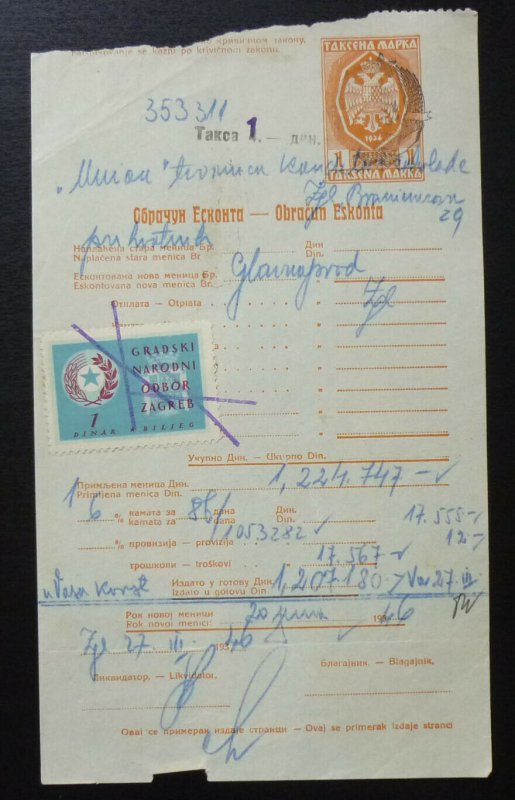 кривичном закону.
kazni po krivičnom zakonu.
ТАКСЕНА МАРКА
1934
1 1
TAKSENA MARKA
353311
Такса 1.— дин.
Zgl
29
Обрачун Есконта — Obračun Eskonta
Наплаћена стара меница Бр. Дин.
Naplaćena stara menica Br. Din.
Есконтована нова меница Бр.
Eskontovana nova menica Br.
Glavnaprod
Zgl
Отплата — Otplata
GRADSKI
NARODNI
ODBOR
ZAGREB
1
DINAR BILJEG
Укупно Дин. — Ukupno Din. 1,224.747—
Примљена меница Дин.
Primljena menica Din.
6 % камата за 86 дана Дин. 17.555—
% kamata za dana Din. 12—
1053282
% провизија — provizija
трошкови — troškovi 17.567
Издато у готову Дин. 1,207.180—
Izdato u gotovu Din.
27.III
Рок новој меници 20 juna 1946
Rok novoj menici
Zgl 27. III. 1946
Ликвидатор. — Likvidator.
Благајник. — Blagajnik.
Овај се примерак издаје странци — Ovaj se primerak izdaje stranci